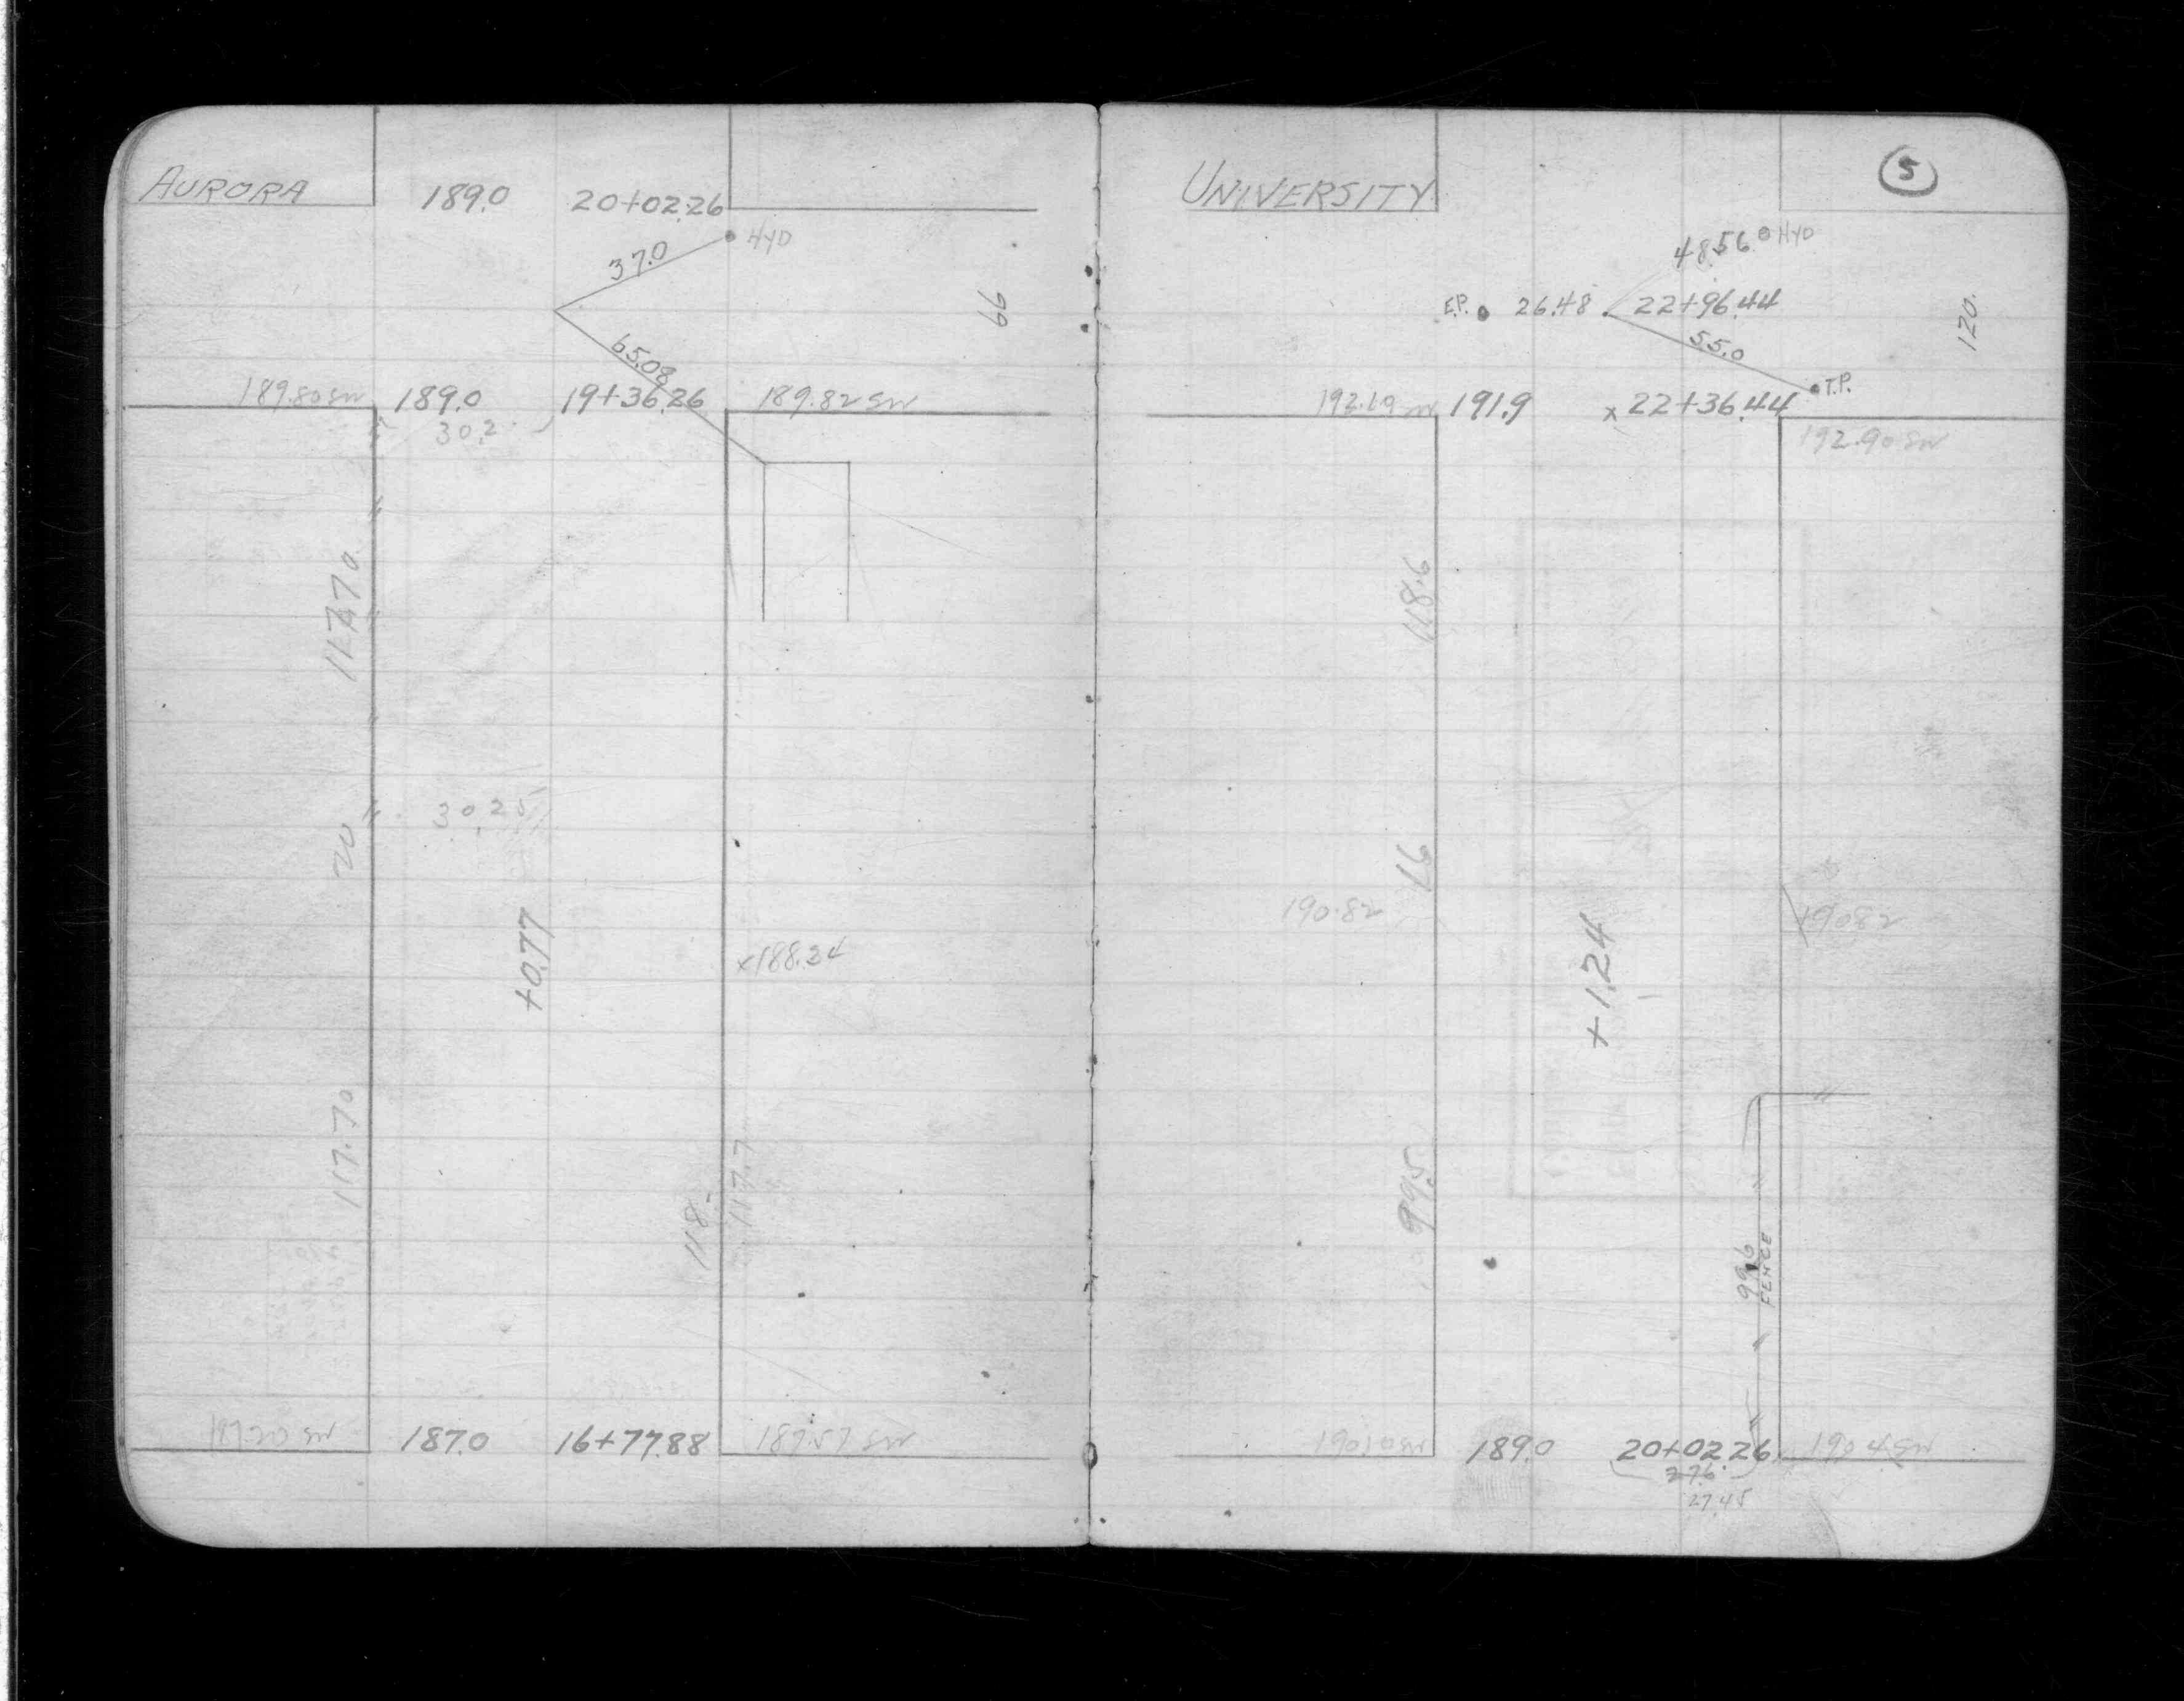 AURORA 189.0 20+02.26
37.0 HYD
66
65.08
189.80 SW 189.0 19+36.26 189.82 SW
30.2
117.70
30.20
20
+0.77
×188.24
117.70
118. 117.7
187.20 SW 187.0 16+77.88 187.57 SW
UNIVERSITY 5
48.56 HYD
E.P. 26.48 22+96.44
55.0
120.
T.P.
192.19 SW 191.9 × 22+36.44
192.90 SW
118.6
16
190.82 190.82
+1.24
99.5
99.6
FENCE
190.10 SW 189.0 20+02.26 190.4 SW
27.6
27.45